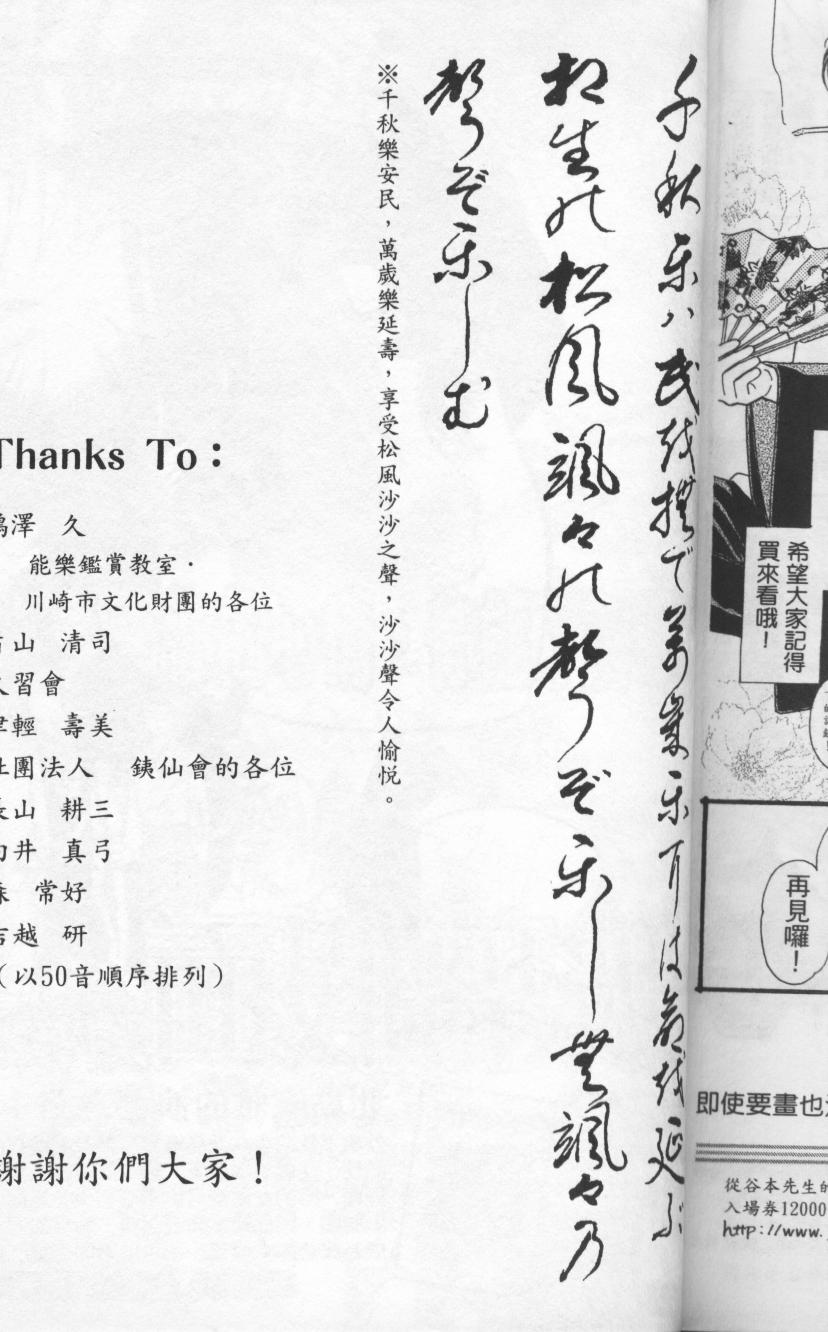 希望大家記得
買來看哦！
再見囉！
即使要畫也
從谷本先生的
入場券12000
http://www.
千秋楽ハ民を撫で萬歳楽には命を延ぶ
相生の松風颯々の聲ぞ楽しむ颯々乃
聲ぞ楽しむ
※千秋樂安民，萬歲樂延壽，享受松風沙沙之聲，沙沙聲令人愉悅。
Thanks To：
澤 久
能樂鑑賞教室·
川崎市文化財團的各位
山 清司
習會
輕 壽美
社團法人 銕仙會的各位
長山 耕三
井 真弓
常好
越 研
（以50音順序排列）
謝謝你們大家！